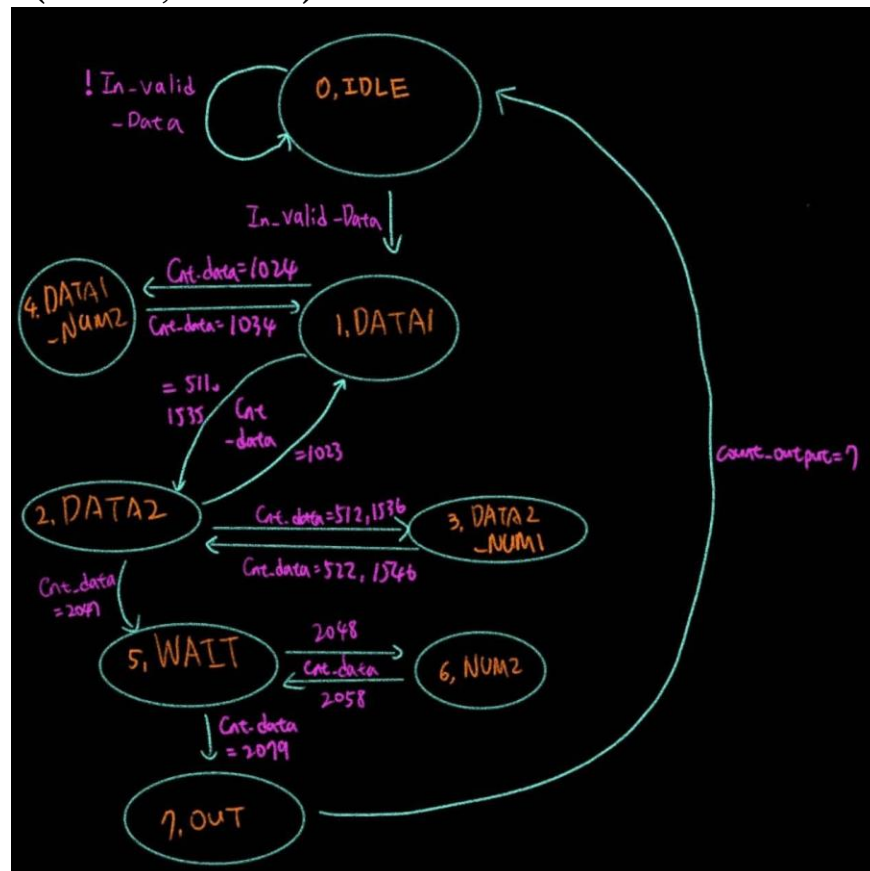 0, IDLE
!In-valid
-Data
In_valid-Data
Cnt-data=1024
4. DATA1
-NUM2
Cnt-data=1034
1, DATA1
= 511,
1535
Cnt
-data
=1023
2. DATA2
Cnt-data=512,1536
3, DATA2
-NUM1
Cnt-data=522, 1546
Cnt-data
=2047
5, WAIT
2048
Cnt-data
2058
6, NUM2
Cnt-data
=2079
7, OUT
Count-output=7